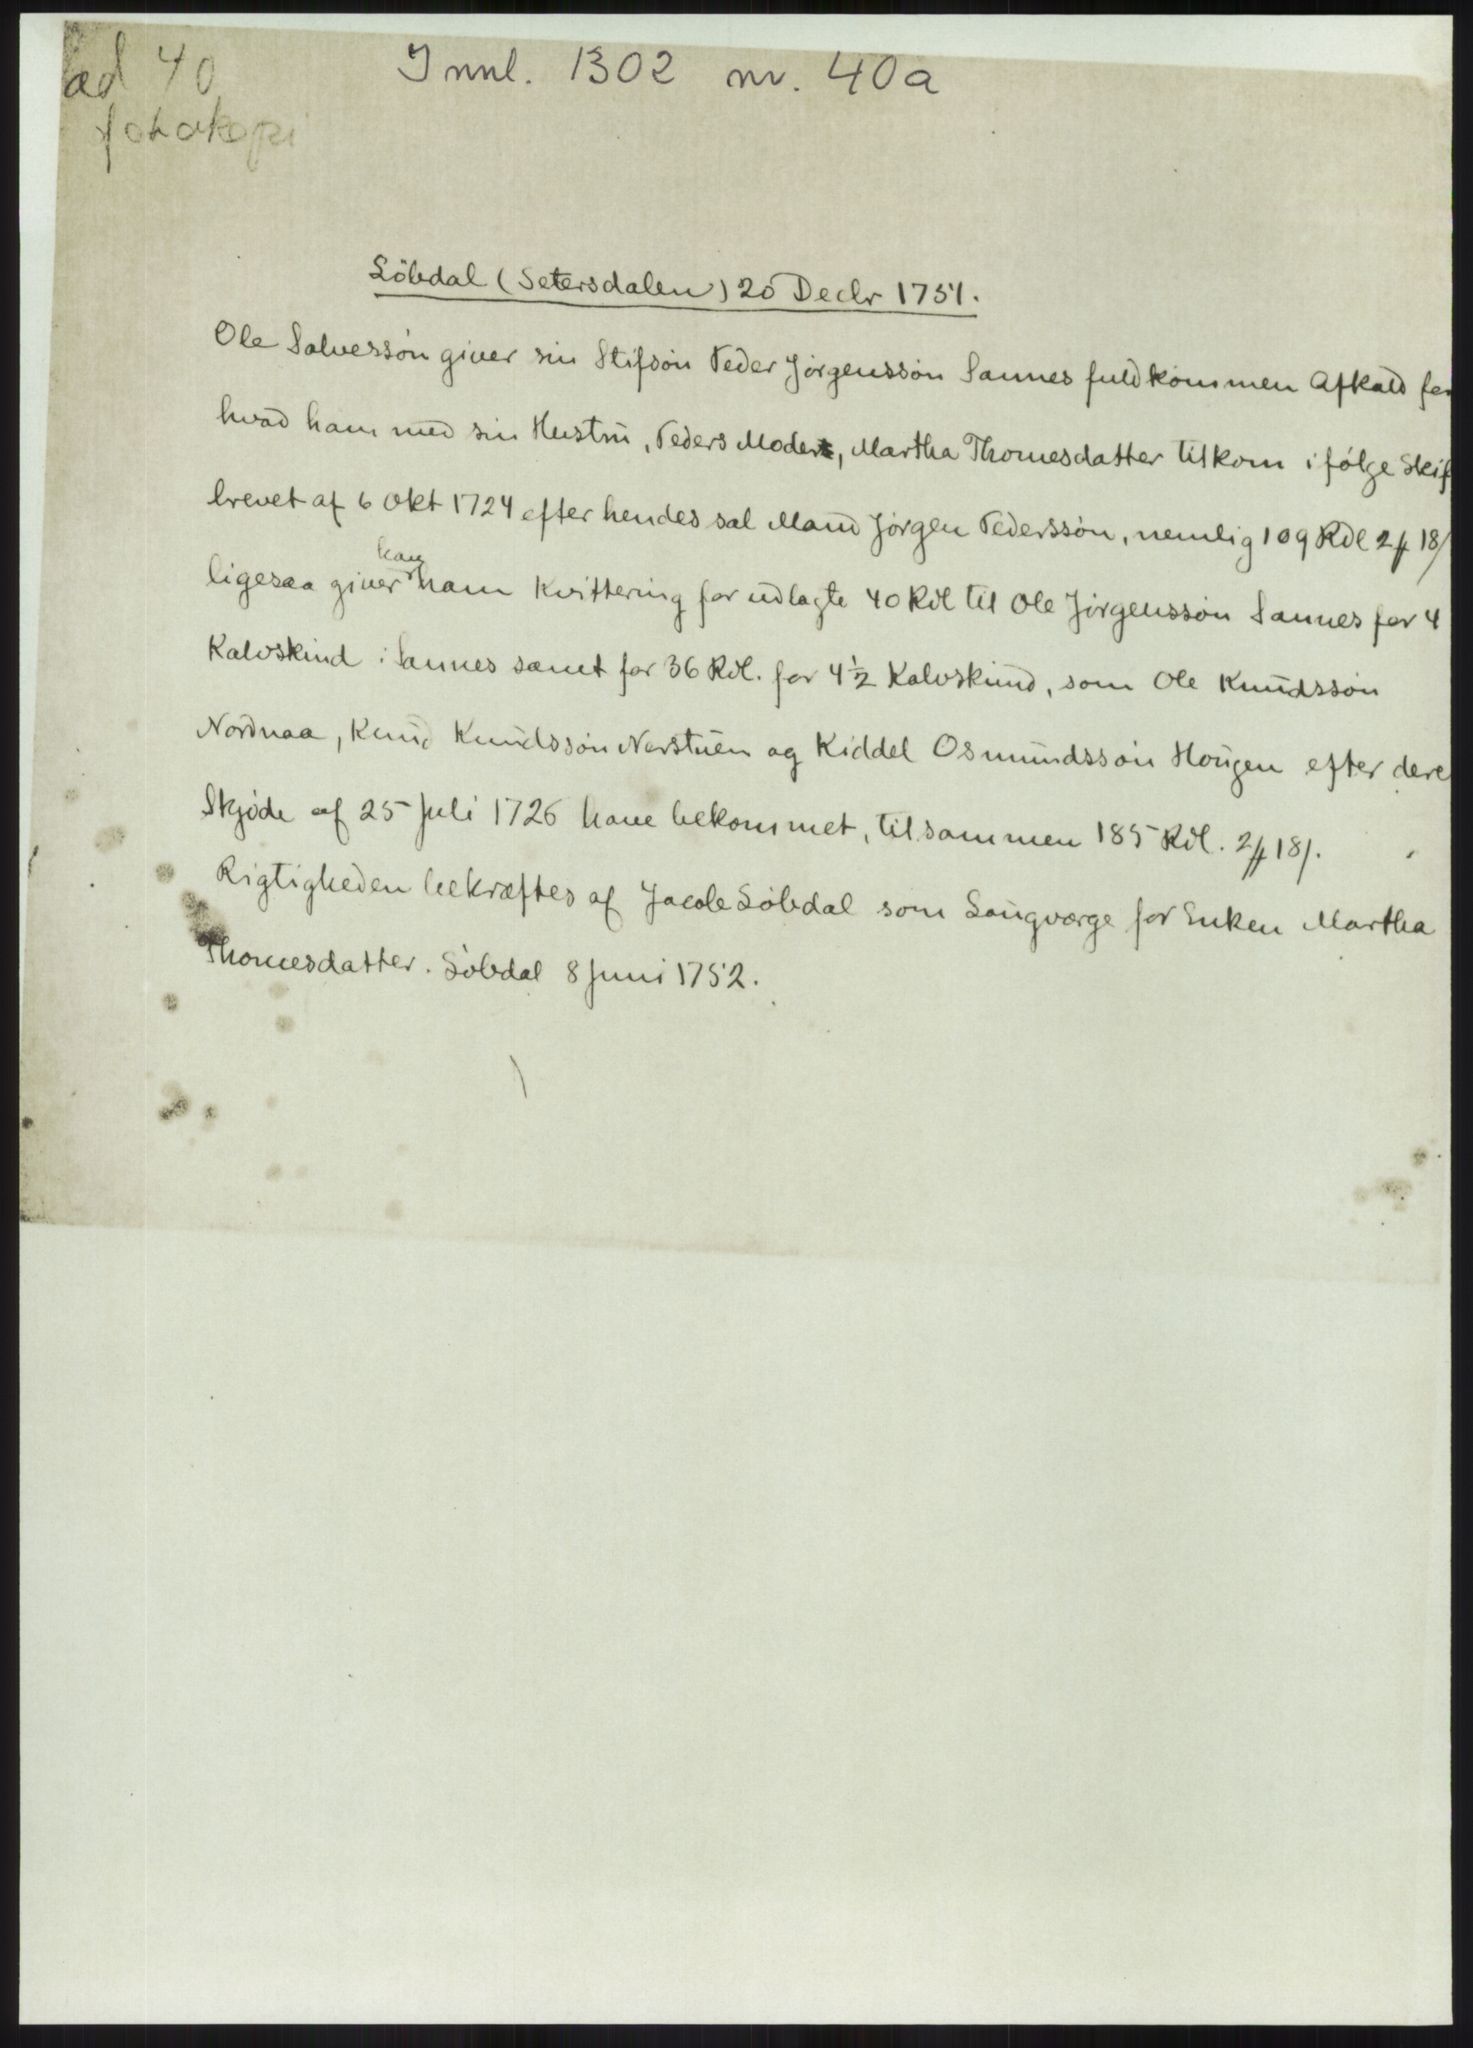 ad 40
fotokopi
Innl. 1302 nr. 40a
Löbdal (Setersdalen) 20 Decbr 1751.
Ole Salvessön giver sin Stifsön Peder Jörgenssön Sannes fuldkommen Afkald for
hvad ham med sin Hustru, Peders Moder, Martha Thomesdatter tilkom i fölge Skif
brevet af 6 Okt 1724 efter hendes sal Mand Jörgen Pederssön, nemlig 109 Rdl 2 ₰ 18/
ligesaa giver han ham Kvittering for udlagte 40 Rdl til Ole Jörgenssön Sannes for 4
Kalvskind i Sannes samt for 36 Rdl. for 4½ Kalvskind, som Ole Knudssön
Nordnaa, Knud Knudssön Nerstuen og Kiddel Osmundssön Hougen efter dere
Skjöde af 25 Juli 1726 have bekommet, tilsammen 185 Rdl. 2 ₰ 18/.
Rigtigheden bekræftes af Jacob Löbdal som Laugværge for Enken Martha
Thomesdatter. Löbdal 8 Juni 1752.